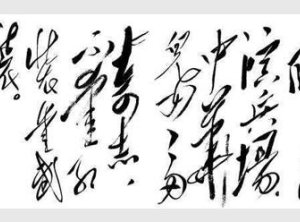 演兵場.
中華
兒女多
奇志，
不愛紅
裝愛武
裝。